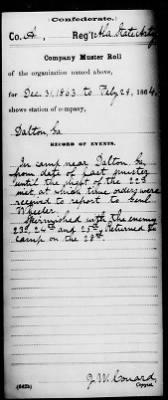 Confederate.
Co. A, Reg't Ala State Arty
Company Muster Roll
of the organization named above,
for Dec 31, 1863 to Feby 29, 1864.
shows station of company,
Dalton, Ga
RECORD OF EVENTS.
In camp near Dalton, Ga,
from date of last muster
until the night of the 22d
inst at which time orders were
received to report to Genl
Wheeler.
Skirmished with the enemy
23d, 24th and 25th Returned to
camp on the 28th.
(642b)
J. M. Conard
Copyist.